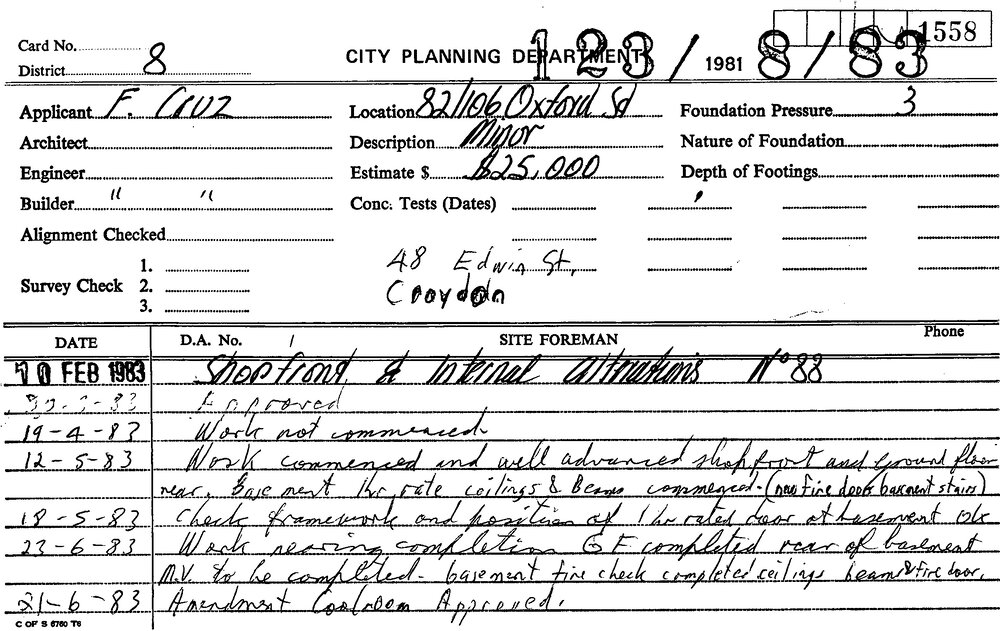 1558
Card No.
District 8
CITY PLANNING DEPARTMENT
123/ 1981 8/83
Applicant F. Cruz
Location 82/106 Oxford St
Foundation Pressure 3
Architect
Description Minor
Nature of Foundation
Engineer
Estimate $ $25,000
Depth of Footings
Builder " "
Conc. Tests (Dates)
Alignment Checked
48 Edwin St,
Croydon
Survey Check 1.
2.
3.
DATE D.A. No. SITE FOREMAN Phone
10 FEB 1983 Shopfront & Internal altrnations No 88
83 Approved
19-4-83 Work not commenced.
12-5-83 Work commenced and well advanced shopfront and ground floor
rear. Basement 1hr rate ceilings & Beams commenced. (new fire doors basement stairs)
18-5-83 Check framework and position of 1hr rated door at basement Ok
23-6-83 Work nearing completion G F completed rear of basement
M.V. to be completed. basement fire check completed ceilings beam & fire door.
21-6-83 Amendment Coolroom Approved.
C OF S 6760 T6